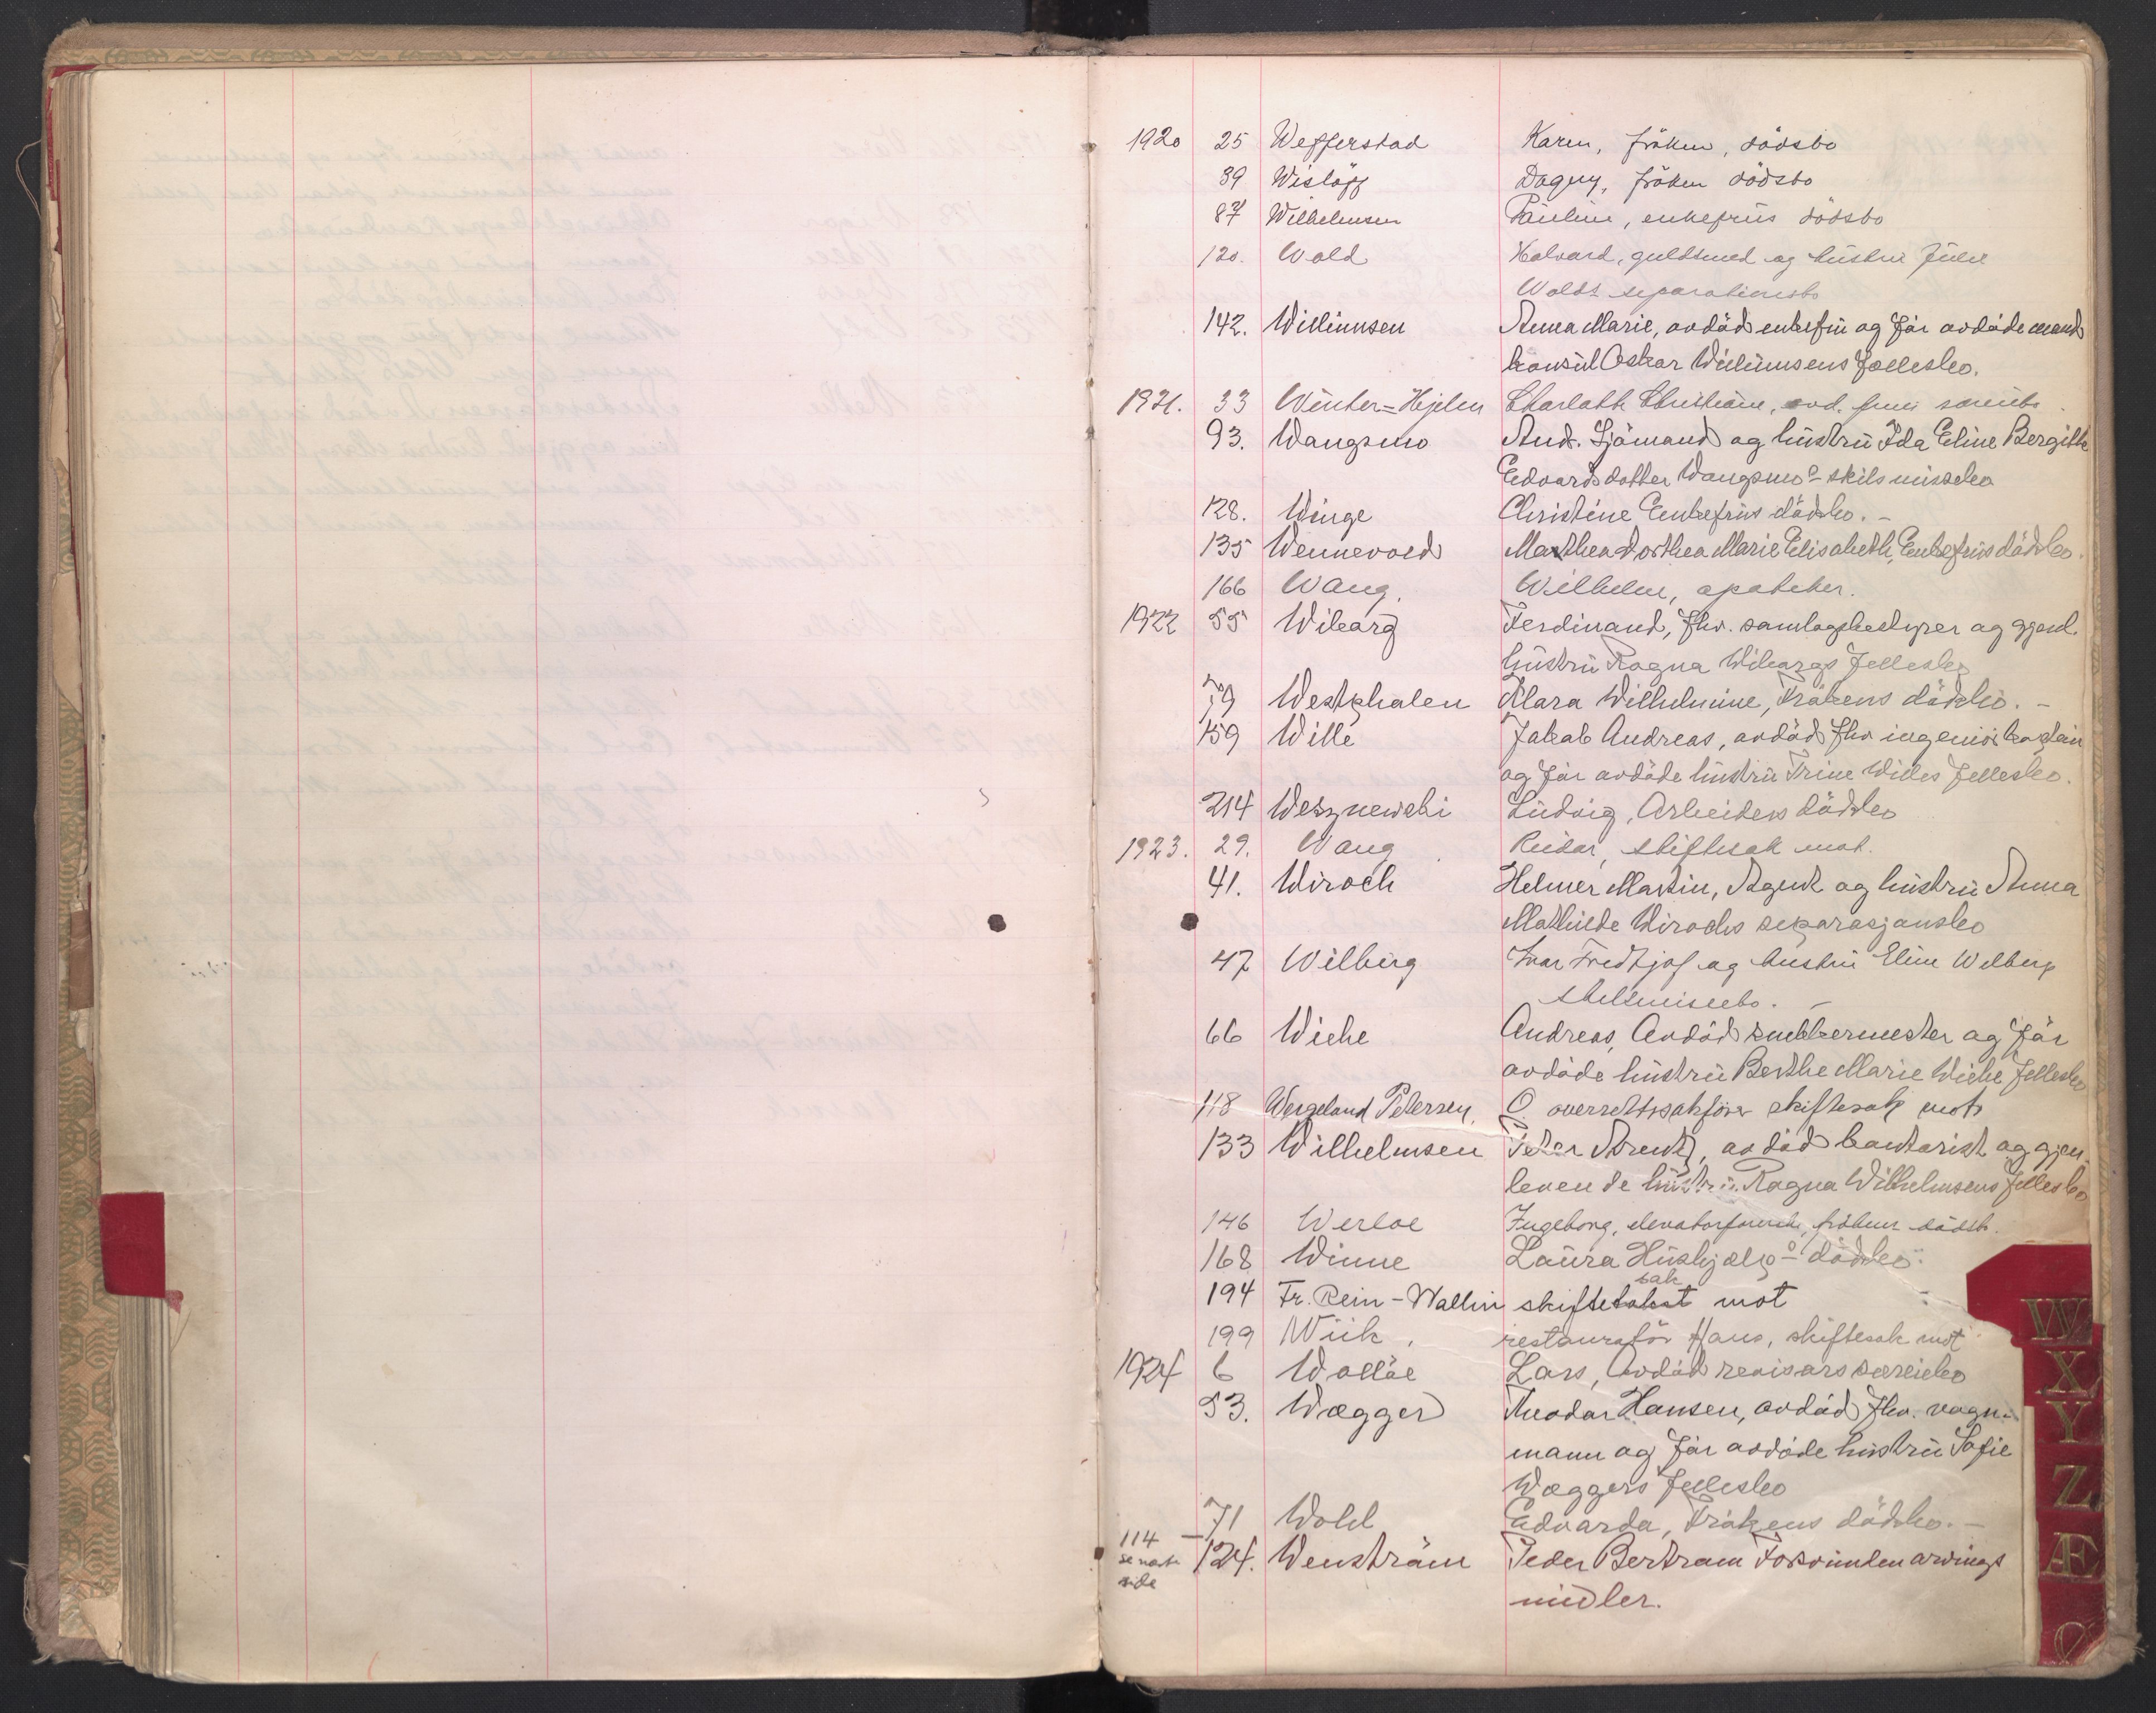 1920 25 Wefferstad Karen, fröken, dödsbo
39 Wislöff Dagny, fröken dödsbo
87 Wilhelmsen Pauline, enkefrus dödsbo
120. Wold Halvard, guldsmed og hustru Julie
Wolds separationsbo
142. Willumsen Anna Marie, avdöd enkefru og för avdöde mand
konsul Oskar Willumsens fællesbo.
1921. 33 Winter=Hjelm Charlotte Christiane, avd. frue
93. Wangsmo And. Sjömand og hustru Ida Eline Bergitte
Edvardsdatter Wangsmos skilsmissebo
128. Winge Christine Enkefrus dödsbo. -
135 Wennevold Marthea Dorthea Marie Elisabeth, Enkefrus dödsbo.
166 Wang. Wilhelm, apoteker.
1922 55 Wiborg Ferdinand, fhv. samlagsbestyrer og gjenl.
hustru Ragna Wiborgs fellesbo
79 Westphalen Klara Wilhelmine, Frökens dödsbo. -
159 Wille Jakob Andreas, avdöd fhv ingeniörkaptein
og för avdöde hustru Trine Willes fellesbo.
214 Wesznewski Ludvig, Arbeiders dödsbo
1923. 29. Wang Reidar, skiftesak mot.
41. Wiroch Helmer Martin, Agent og hustru Anna
Mathilde Wirochs separasjonsbo
47 Wilberg Ivar Fredtjof og hustru Eline Wilberg
skilsmissebo. -
66 Wiche Andreas, Avdöd snekkermester og för
avdöde hustru Berthe Marie Wiche fellesbo
118 Wergeland Petersen, O. overrettssakförer skiftesak mot
133 Wilhelmsen Peter Arentz, avdöd kontorist og gjen-
levende hustru Ragna Wilhelmsens fellesbo
146 Werloe Ingeborg, fröken dödsb.
168 Winne Laura Hushjelps dödsbo.
sak
194 Fr. Rein-Wallin skifte mot
199 Wiik, restauratör Hans, skiftesak mot
1924 6 Wolläe Lars, Avdöd revisors særeiebo
53. Wægger Theodor Hansen, avdöd fhv. vogn-
mann og för avdöde hustru Sofie
Wæggers fellesbo
71 Wohl Edvarda, Frökens dödsbo. -
114 —
se neste
side
124. Wenström Peder Bertram Forsvunden arvings
midler.
W
X
Y
Z
Æ
Ø